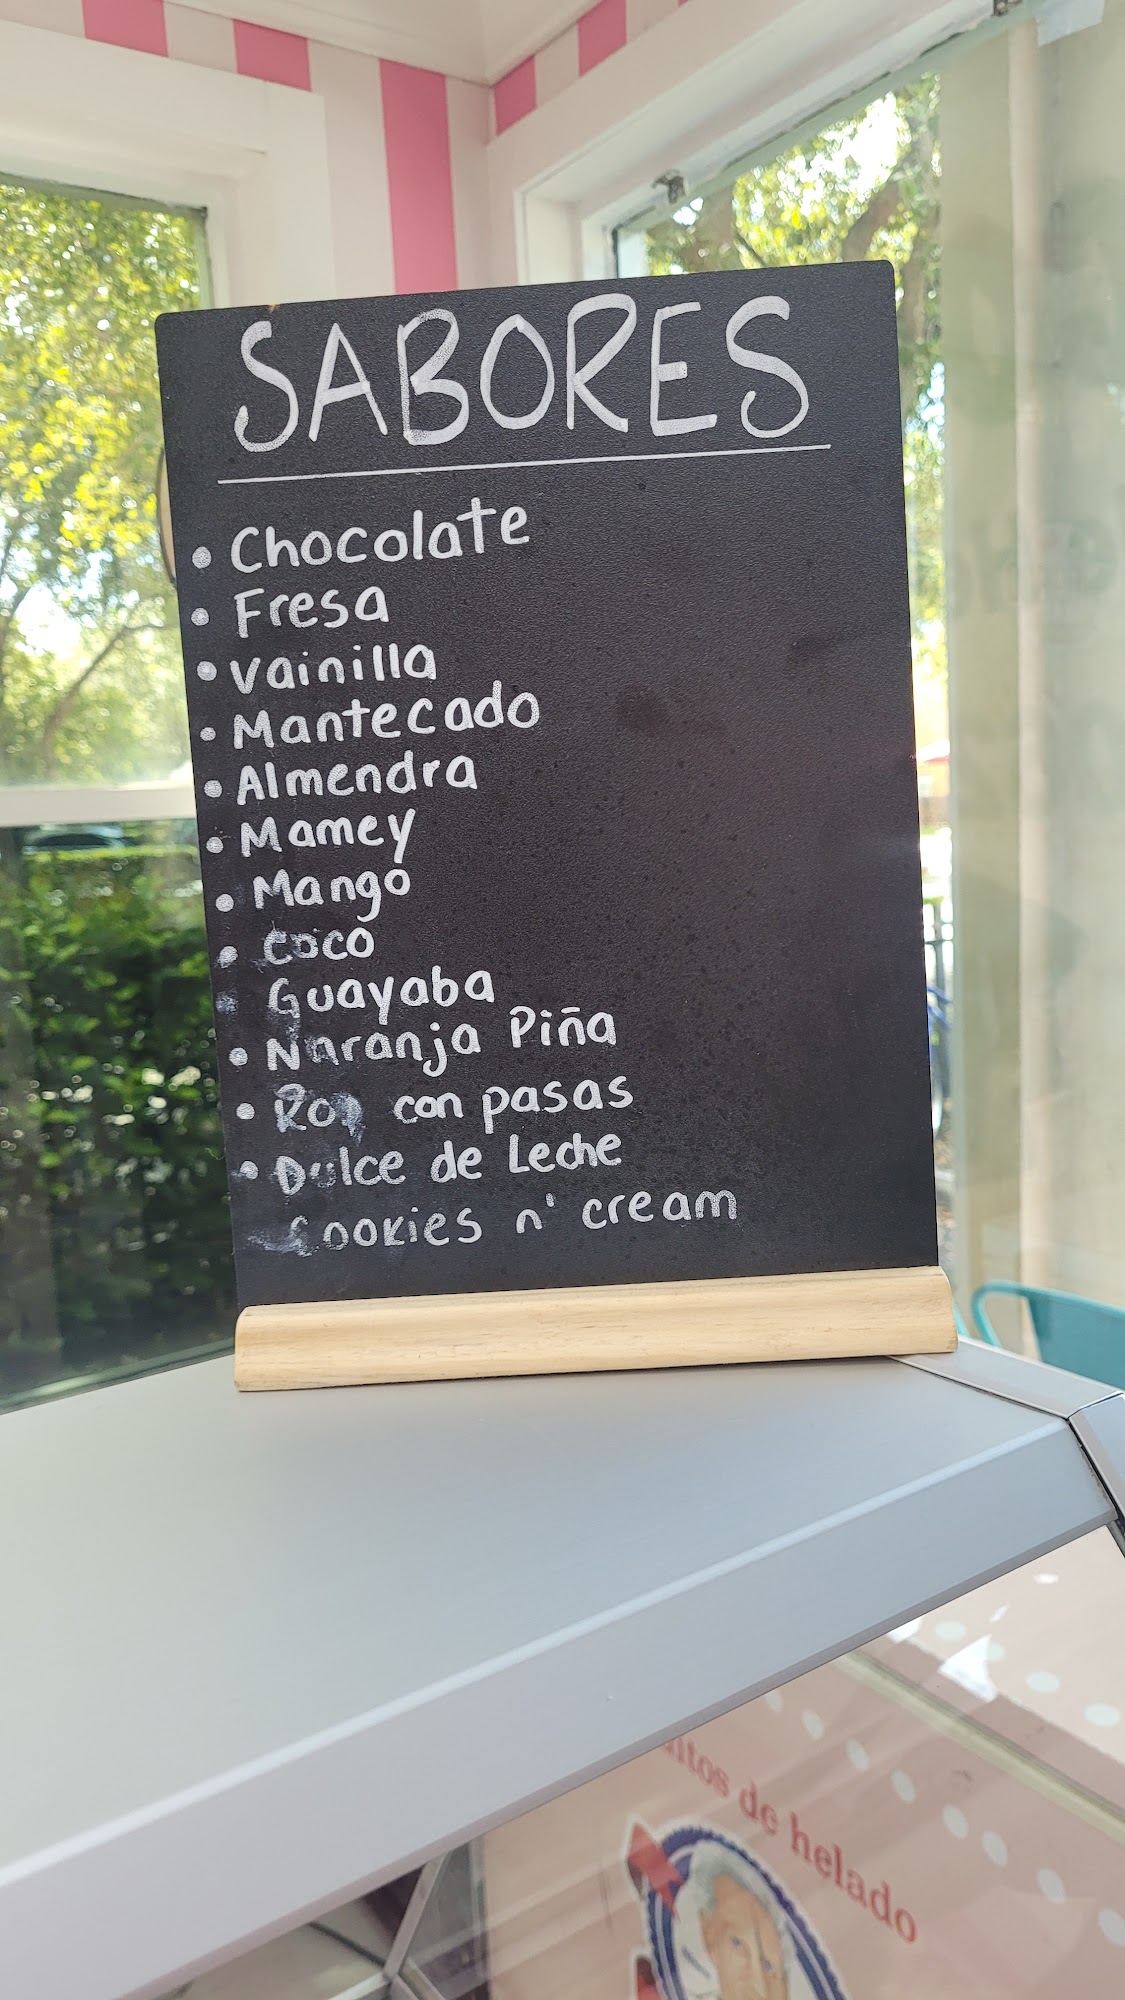 SABORES
• Chocolate
• Fresa
• Vainilla
• Mantecado
• Almendra
• Mamey
• Mango
• Coco
Guayaba
• Naranja Piña
• Ron con pasas
• Dulce de Leche
Cookies n' cream
de helado